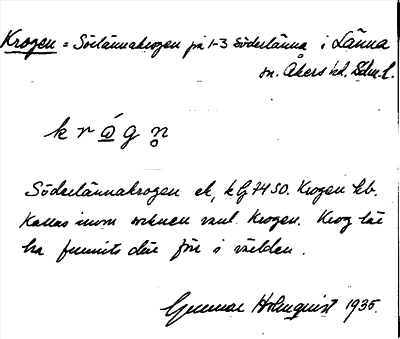 Krogen = Sörlännakrogen på 1-3 Söderlänna i Länna
sn. Åkers hd. Sdm.l.
k r ǻ g n̥
Söderlännakrogen ek, kbl 74 SO. Krogen hb.
Kallas inom socknen vanl. Krogen. Krog lär
ha funnits där förr i världen.
Gunnar Holmquist 1935.